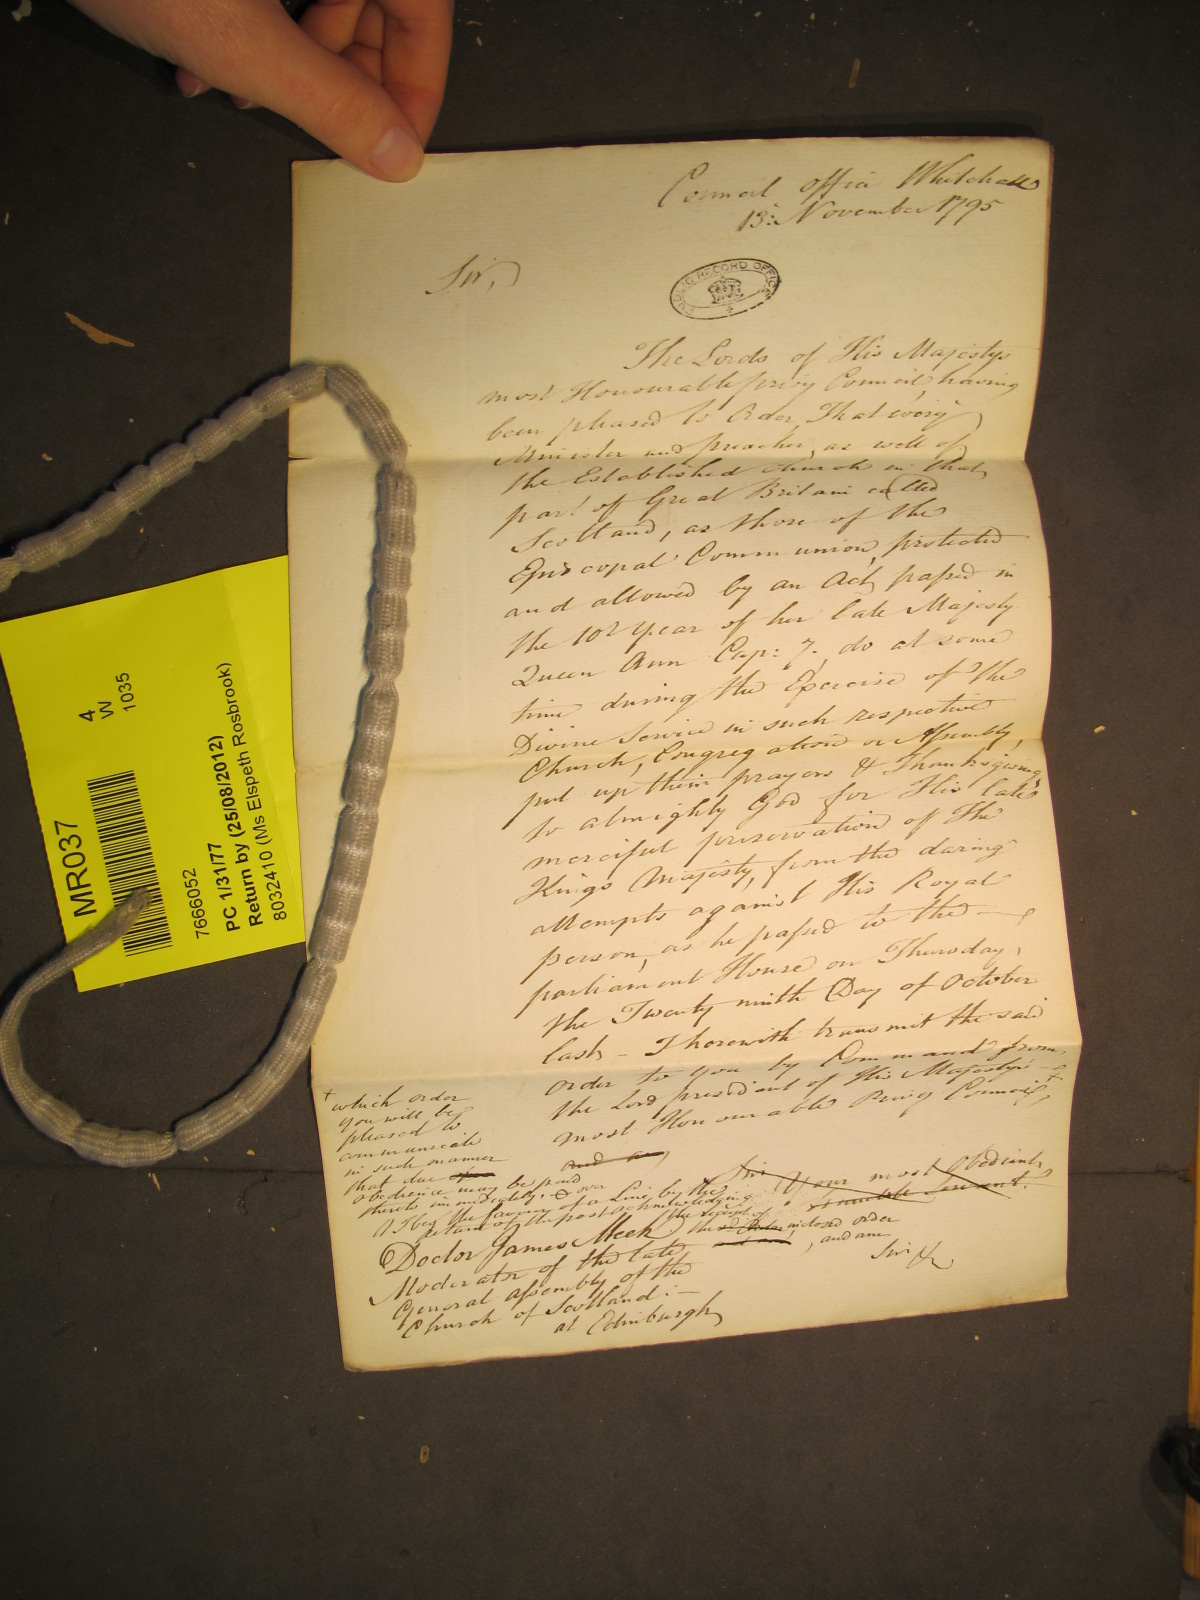 Council office Whitehall
13th November 1795
Sir,
PUBLIC RECORD OFFICE
The Lords of His Majestys
most Honourable privy Council, having
been pleased to Order, That every
Minister and preacher, as well of
the Established Church in that
part of Great Britain called
Scotland, as those of the
Episcopal Communion, protected
and allowed by an Act, passed in
the 10th Year of her late Majesty
Queen Ann Cap: 7. do at some
time during the Exercise of the
Divine Service in such respective
Church, Congregation or Assembly,
put up their prayers & Thanksgiving
to almighty God for His late
merciful preservation of The
Kings Majesty, from the daring
attempts against His Royal
person, as he passed to the
parliament House on Thursday,
the Twenty ninth Day of October
last, - I herewith transmit the said
order to you by Command from
the Lord president of His Majesty's
most Honourable Privy Council, +
and am,
Sir Your most Obedient
Humble Servant.
+ which order
you will be
pleased to
communicate
in such manner
that due
obedience may be paid
thereto immediately, & over
I beg the favour of a Line by the
return of the post acknowledging
the receipt of
the said Order inclosed order
and am, , and am
Sir &c
Doctor James Meek
Moderator of the late
General Assembly of the
Church of Scotland: -
at Edinburgh
MR037
4
W
1035
7666052
PC 1/31/77
Return by (25/08/2012)
8032410 (Ms Elspeth Rosbrook)